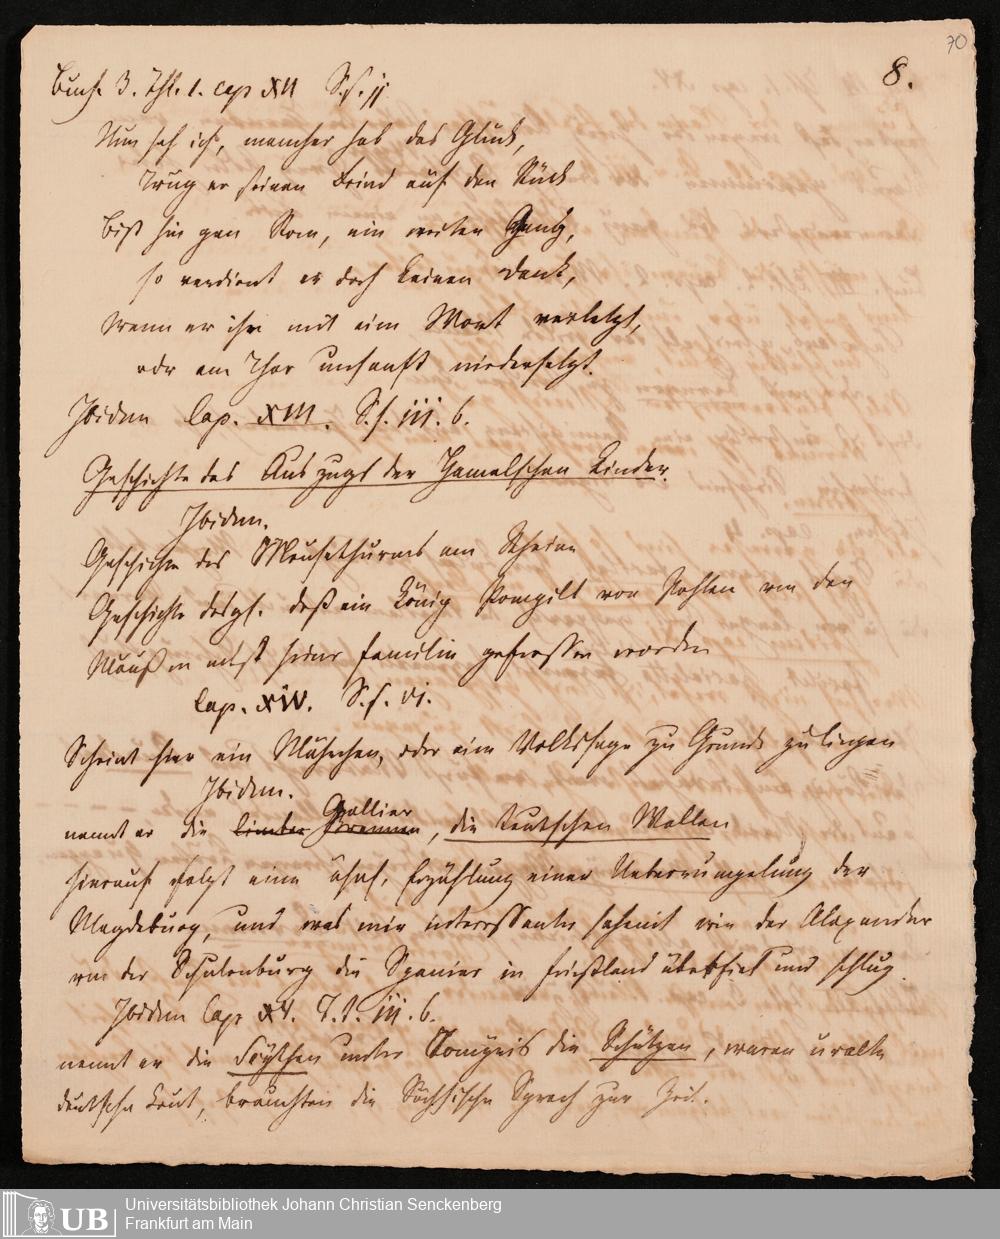 70
8.
Buch 3. Thl. 1. cap XII S. f. jj
Nun sah ich, mancher hab das Glück,
Trüg er seinen Freind auf den Rück
Biß hin gen Rom, ein weiten Gang,
so verdient er doch keinen Dank,
Wenn er ihn mit eim Wort verletzt,
odr am Thor unsanft niedersetzt.
Ibidem Cap. XIII. S. f. iij. 6.
Geschichte des Auszugs der Hamelschen Kinder.
Ibidem.
Geschichte des Mausethurms am Rheine
Geschichte desgl. daß ein König Pompilt von Pohlen von den
Mäußen nebst seiner Familie gefressen worden
Cap. XIV. S. f. vj.
Scheint hier ein Mährchen, oder eine Volkssage zu Grunde zu liegen
Ibidem.
Gallier
nennt er die , die teutschen Wallen
hierauf folgt eine Erzählung einer Ueberrumpelung der
Magdeburg, und was mir interessanter scheint wie der Alexander
von der Schulenburg die Spanier in Frießland überfiel und schlug.
Ibidem Cap. XV. T. t. iij. 6.
nennt er die Scythen unter Tomyris die Schützen, waren uralte
deutsche Leut, brauchten die Sächsische Sprach zur Zeit.
UB
Universitätsbibliothek Johann Christian Senckenberg
Frankfurt am Main